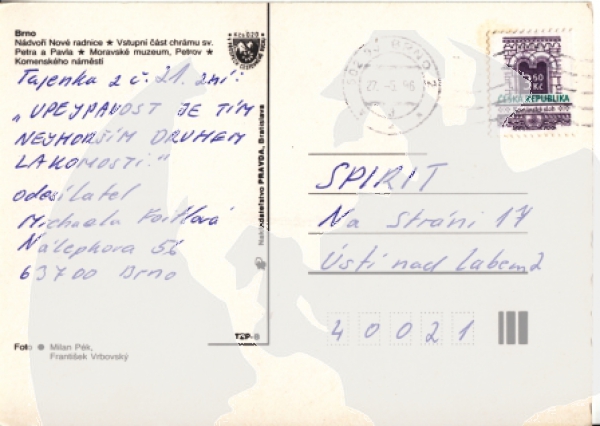 Brno
Nádvoří Nové radnice ★ Vstupní část chrámu sv.
Petra a Pavla ★ Moravské muzeum, Petrov ★
Komenského náměstí
Kčs 0,20
Tajenka z č. 21. zní:
„UPEJPAVOST JE TÍM
NEJHORŠÍM DRUHEM
LAKOMOSTI."
odesílatel
Michaela
Nálepkova 56
63700 Brno
Foto ● Milan Pék,
František Vrbovský
Nakladatelství PRAVDA, Bratislava
TČP-B
BRNO 2
27.-5.96
60
Kč
ČESKÁ REPUBLIKA
SPIRIT
Na Stráni 17
Ústí nad Labem 2
40021